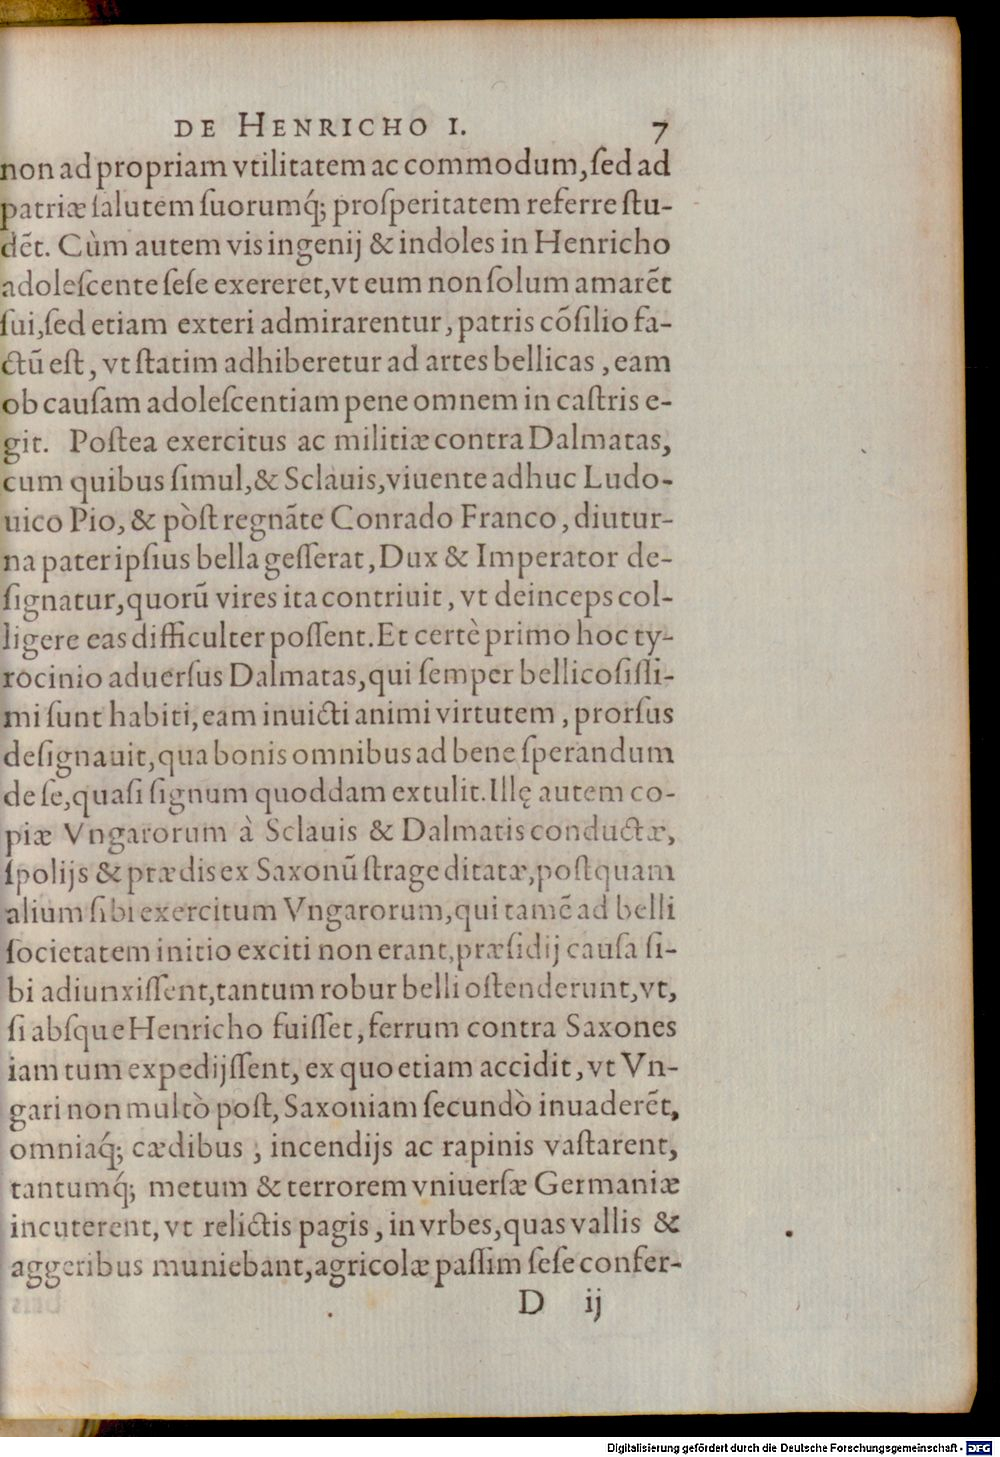 DE HENRICHO I. 7
non ad propriam vtilitatem ac commodum, ſed ad
patriæ ſalutem ſuorumq́; proſperitatem referre ſtu-
dẽt. Cùm autem vis ingenij & indoles in Henricho
adoleſcente ſeſe exereret, vt eum non ſolum amarẽt
ſui, ſed etiam exteri admirarentur, patris cõſilio fa-
ctũ eſt, vt ſtatim adhiberetur ad artes bellicas, eam
ob cauſam adoleſcentiam pene omnem in caſtris e-
git. Poſtea exercitus ac militiæ contra Dalmatas,
cum quibus ſimul, & Sclauis, viuente adhuc Ludo-
uico Pio, & pòſt regnãte Conrado Franco, diutur-
na pater ipſius bella geſſerat, Dux & Imperator de-
ſignatur, quorũ vires ita contriuit, vt deinceps col-
ligere eas difficulter poſſent. Et certè primo hoc ty-
rocinio aduerſus Dalmatas, qui ſemper bellicoſiſſi-
mi ſunt habiti, eam inuicti animi virtutem, prorſus
deſignauit, qua bonis omnibus ad bene ſperandum
de ſe, quaſi ſignum quoddam extulit. Illę autem co-
piæ Vngarorum à Sclauis & Dalmatis conductæ,
ſpolijs & prædis ex Saxonũ ſtrage ditatæ, poſtquam
alium ſibi exercitum Vngarorum, qui tamẽ ad belli
ſocietatem initio exciti non erant, præſidij cauſa ſi-
bi adiunxiſſent, tantum robur belli oſtenderunt, vt,
ſi abſque Henricho fuiſſet, ferrum contra Saxones
iam tum expedijſſent, ex quo etiam accidit, vt Vn-
gari non multò poſt, Saxoniam ſecundò inuaderẽt,
omniaq́; cædibus, incendijs ac rapinis vaſtarent,
tantumq́; metum & terrorem vniuerſæ Germaniæ
incuterent, vt relictis pagis, in vrbes, quas vallis &
aggeribus muniebant, agricolæ paſſim ſeſe confer-
D ij
Digitalisierung gefördert durch die Deutsche Forschungsgemeinschaft - DFG